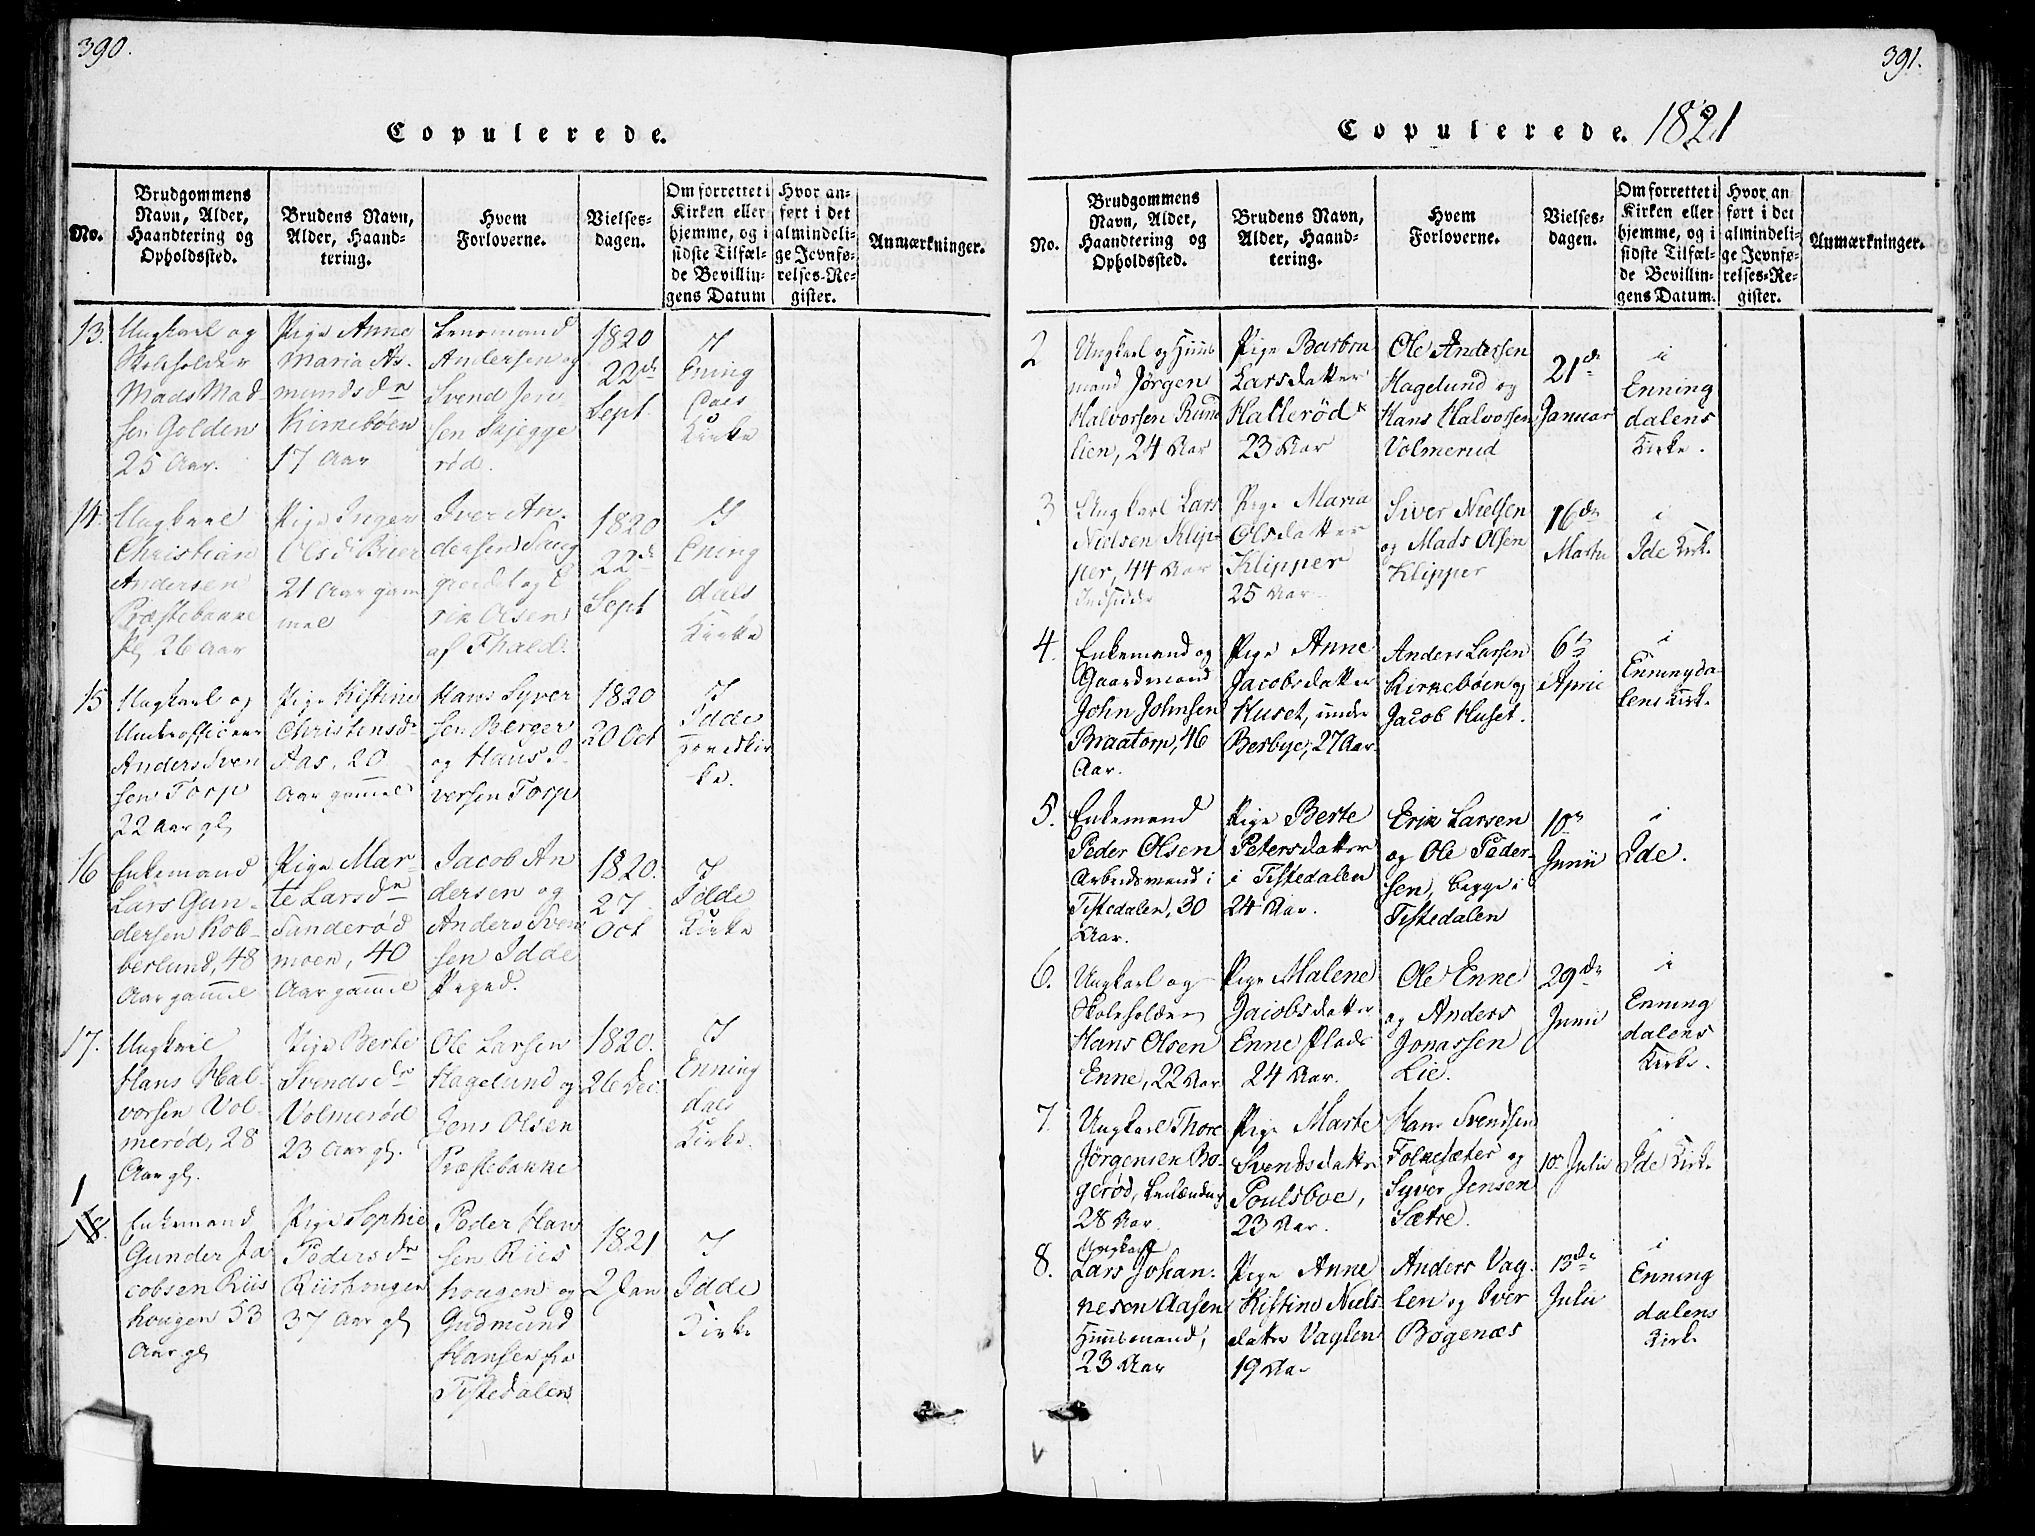 390.
Copulerede.
No.
Brudgommens
Navn, Alder,
Haandtering og
Opholdssted.
Brudens Navn,
Alder, Haand-
tering.
Hvem
Forloverne.
Vielses-
dagen.
Om forrettet i
Kirken eller
hjemme, og i
sidste Tilfæl-
de Bevillin-
gens Datum
Hvor an-
ført i det
almindeli-
ge Jevnfø-
relses-Re-
gister.
Anmærkninger.
13.
Ungkarl og
Skoleholder
Mads Mad-
sen Golden
25 Aar.
Pige Anne
Maria As-
mundsdr
Kirkebøen
17 Aar
Lensmand
Andersen og
Svend Jen-
sen Skjegge
rød.
1820
22de
Sept.
I
Ening
dals
Kirke
14.
Ungkarl
Christian
Andersen
Præstebakke
Pl 26 Aar
Pige Inger
Olsdr Brier
21 Aar gam
mel
Iver An-
dersen
og E
rik Olsen
af Fhald.
1820
22de
Sept
I
Ening
dals
Kirke
15
Ungkarl og
Underofficeer
Anders Sven
sen Torp
22 Aar gl
Pige Kistine
Christensdr
Aas, 20
Aar gammel
Hans Syver
sen Berger
og Hans S.
versen Torp
1820
20 Oct
I
Idde
Hovedkir
ke.
16
Enkemand
Lars Gun-
dersen Kob-
berlund, 48
Aar gammel
Pige Mar-
te Larsdr
Sanderød
moen, 40
Aar gammel
Jacob An
dersen og
Anders Sven
sen Idde
Pr.gd.
1820.
27
Oct
I
Idde
Kirke
17.
Ungkarl
Hans Hal-
vorsen Vol-
merød, 28
Aar gl.
Pige Berte
Svendsdr
Volmerød
23 Aar gl.
Ole Larsen
Hagelund og
Jens Olsen
Præstebakke
1820.
26 Dec
I
Enning
dals
Kirke.
1
18.
Enkemand
Gunder Ja
cobsen Riis
hougen 53
Aar gl
Pige Sophie
Pedersdr
Riishougen
37 Aar gl
Peder Han
sen Riis
hougen og
Gudmund
Hansen fra
Tistedalen
1821
2 Jan
I
Idde
Kirke
391.
Copulerede. 1821
No.
Brudgommens
Navn, Alder,
Haandtering og
Opholdssted.
Brudens Navn,
Alder, Haand-
tering.
Hvem
Forloverne.
Vielses-
dagen.
Om forrettet i
Kirken eller
hjemme, og i
sidste Tilfæl-
de Bevillin-
gens Datum.
Hvor an
ført i det
almindeli-
ge Jevnfø-
relses-Re-
gister.
Anmærkninger.
2
Ungkarl og Huus
mand Jørgen
Halvorsen Rund
lien, 24 Aar
Pige Barbra
Larsdatter
Hallerød
23 Aar
Ole Anderssen
Hagelund og
Hans Halvorsen
Volmerud
21de
Januar
i
Enning
dalens
Kirke.
3
Ungkarl Lars
Nielsen Klip-
per, 44 Aar
Indsidder
Pige Maria
Olsdatter
Klipper
25 Aar
Siver Nielsen
og Mads Olsen
Klipper
16de
Marts
i
Ide Kirke
4.
Enkemand og
Gaardmand
John Johnsen
Braatorp, 46
Aar.
Pige Anne
Jacobsdatter
Huset, under
Berbye, 27 Aar
Anders Larsen
Kirkebøen og
Jacob Huset.
6te
April
i
Enningda
lens Kirke
5.
Enkemand
Peder Olsen
Arbeidsmand i
Tistedalen, 30
Aar.
Pige Berte
Petersdatter
i Tistedalen
24 Aar.
Erik Larsen
og Ole Peder-
sen, begge i
Tistedalen
10de
Junii
i
Ide.
6.
Ungkarl og
Skoleholder
Hans Olsen
Enne, 22 Aar
Pige Malene
Jacobsdatter
Enne Plads
24 Aar.
Ole Enne
og Anders
Jonassen
Lie.
29de
Junii
i
Enning
dalens
Kirke.
7.
Ungkarl Thore
Jørgensen Bo-
gerød, Leilænding
28 Aar.
Pige Marte
Svendsdatter
Poulsboe,
23 Aar.
Hans Svendsen
Folkesæter og
Syver Jensen
Sætre.
10 Julii
i
Ide Kirke
8.
Ungkarl
Lars Johan-
nesen Aasen
Huusmand,
23 Aar
Pige Anne
Kistine Niels
datter Vaglen
19 Aar
Anders Vag-
len og Iver
Bogenæs
13de
Julii
i
Enning
dalens
Kirke